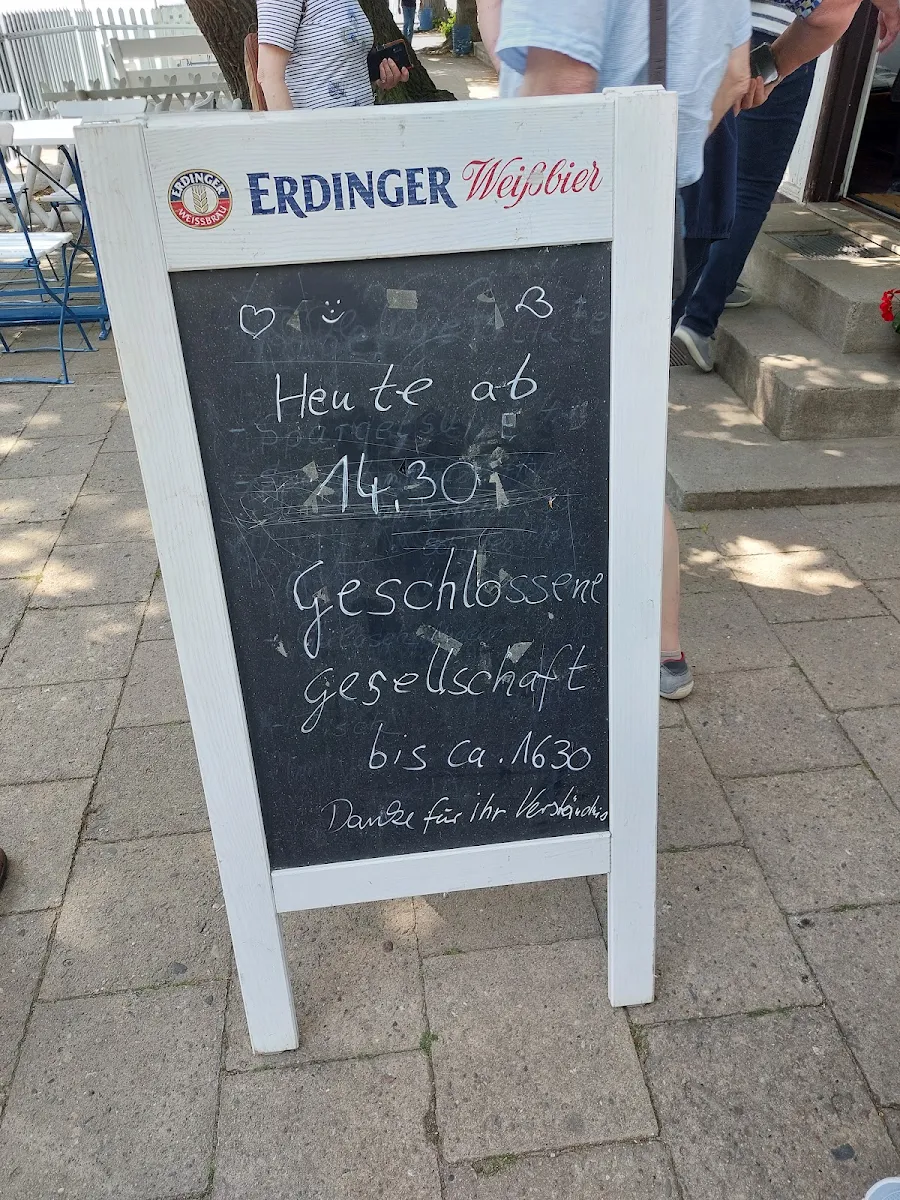 ERDINGER
WEISSBRÄU
ERDINGER Weißbier
Heute ab
14,30
Geschlossene
gesellschaft
bis ca. 1630
Danke für ihr Verständnis